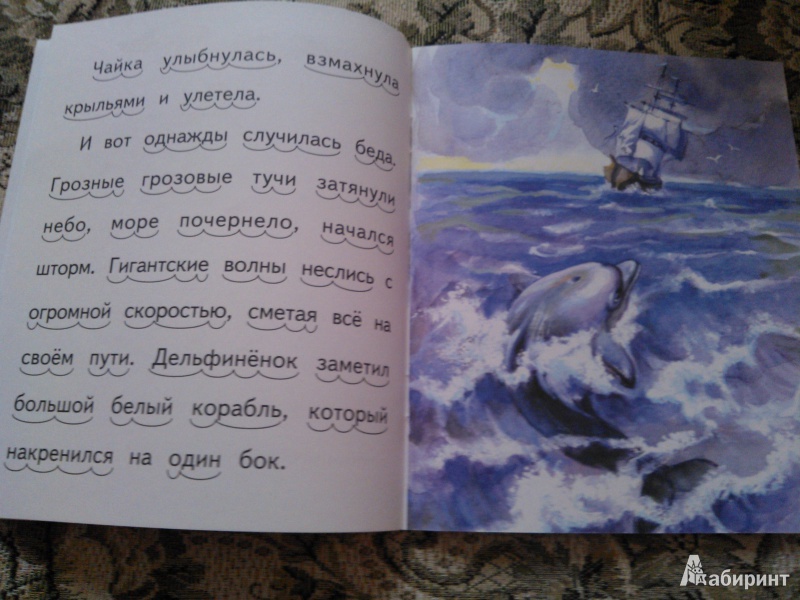 Чайка улыбнулась, взмахнула
крыльями и улетела.
И вот однажды случилась беда.
Грозные грозовые тучи затянули
небо, море почернело, начался
шторм. Гигантские волны неслись с
огромной скоростью, сметая всё на
своём пути. Дельфинёнок заметил
большой белый корабль, который
накренился на один бок.
Лабиринт